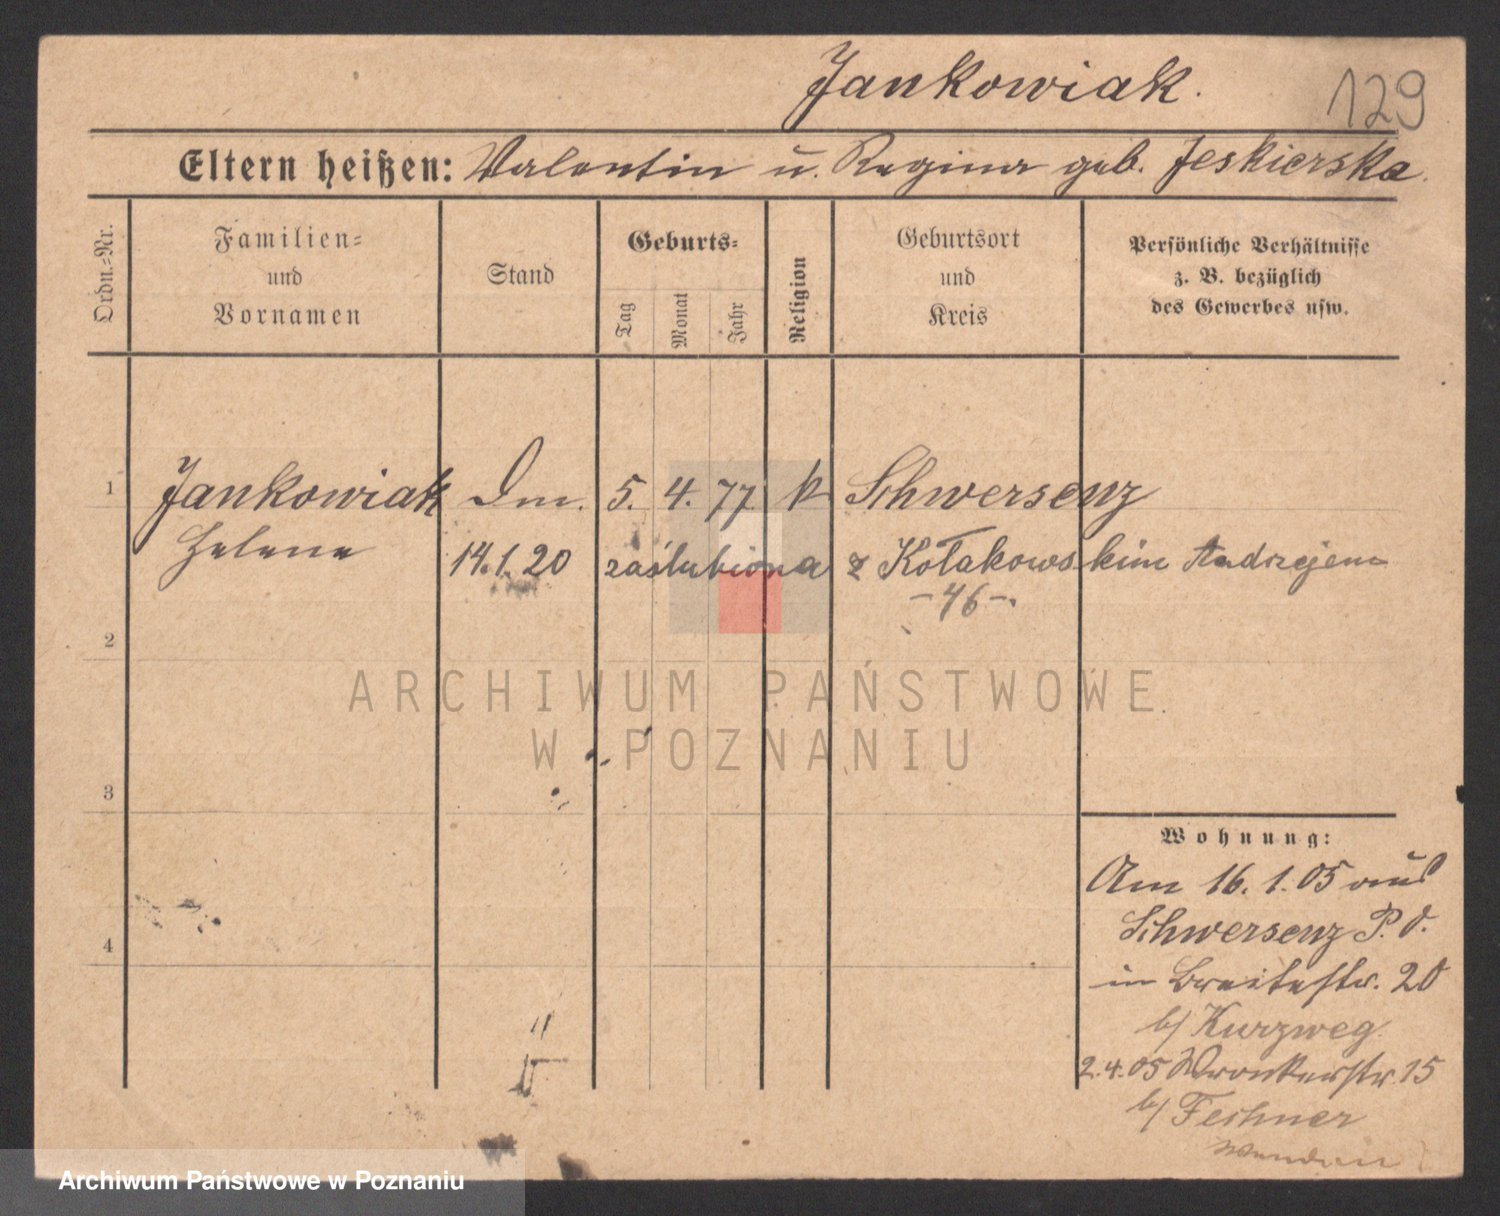 Jankowiak.
129
Eltern heißen: Valentin u. Regina geb. Jeskierska.
Ordn.-Nr.
Familien-
und
Vornamen
Stand
Geburts-
Tag
Monat
Jahr
Religion
Geburtsort
und
Kreis
Persönliche Verhältnisse
z. B. bezüglich
des Gewerbes usw.
1 Jankowiak Dm. 5. 4. 77 k Schwersenz
Helene 14.1.20 zaślubiona z Kołakowskim Andrzejem
-46-.
2
3
4
ARCHIWUM PAŃSTWOWE
W POZNANIU
Wohnung:
Am 16.1.05 aus
Schwersenz P.O.
in Breitestr. 20
b/ Kurzweg
2.4.05 Wronkerstr. 15
b/ Feshner
wenden
Archiwum Państwowe w Poznaniu